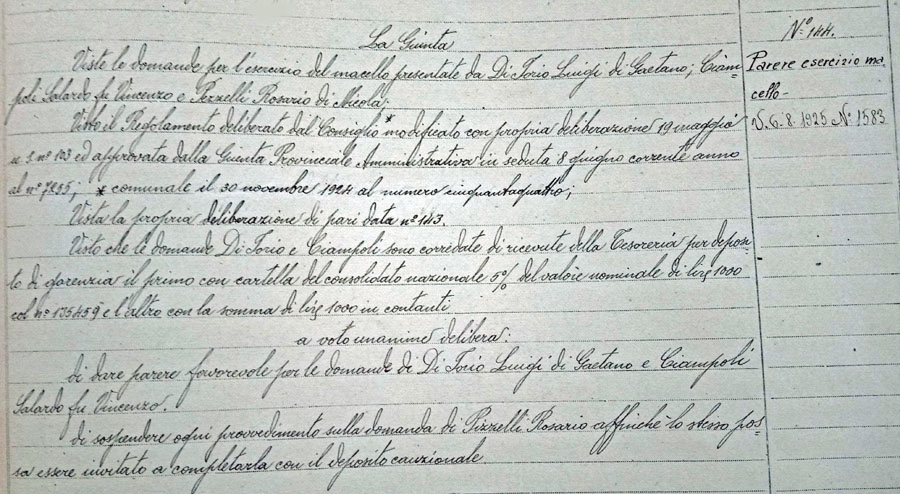 La Giunta
Viste le domande per l'esercizio del macello presentate da Di Iorio Luigi di Gaetano; Ciam-
poli Salardo fu Vincenzo e Pizzelli Rosario di Nicola;
Visto il Regolamento deliberato dal Consiglio * modificato con propria deliberazione 19 maggio
u. s. nº 103 ed approvata dalla Giunta Provinciale Amministrativa in seduta 8 giugno corrente anno
al nº 7895; * comunale il 30 novembre 1924 al numero cinquantaquattro;
Vista la propria deliberazione di pari data nº 143.
Visto che le domande Di Iorio e Ciampoli sono corredate di ricevute della Tesoreria per deposi-
to di garenzia il primo con cartella del consolidato nazionale 5% del valore nominale di lire 1000
col nº 135459 e l'altro con la somma di lire 1000 in contanti
a voto unanime delibera:
di dare parere favorevole per le domande di Di Iorio Luigi di Gaetano e Ciampoli
Salardo fu Vincenzo.
di sospendere ogni provvedimento sulla domanda di Pizzelli Rosario affinchè lo stesso pos-
sa essere invitato a completarla con il deposito cauzionale
Nº 144.
Parere esercizio ma-
cello-
V. 6. 8. 1925 Nº 1583